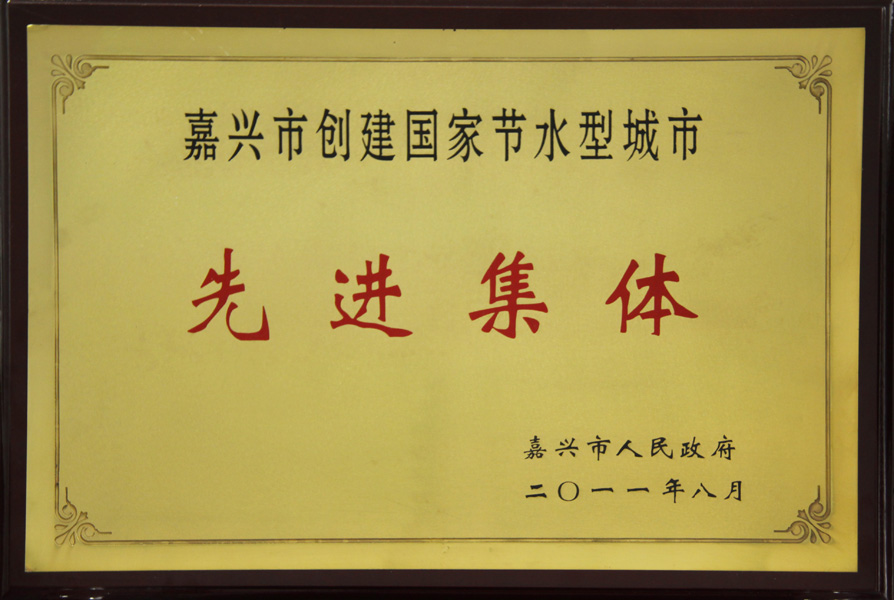 嘉兴市创建国家节水型城市
先进集体
嘉兴市人民政府
二〇一一年八月